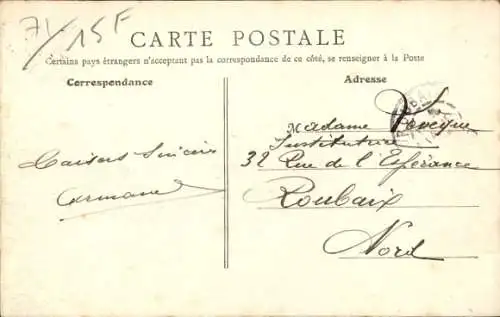 71/15F
CARTE POSTALE
Certains pays étrangers n'acceptant pas la correspondance de ce côté, se renseigner à la Poste
Correspondance
Adresse
Baisers Sincères
Germaine
Madame
Institutrice
32 Rue de l'Espérance
Roubaix
Nord